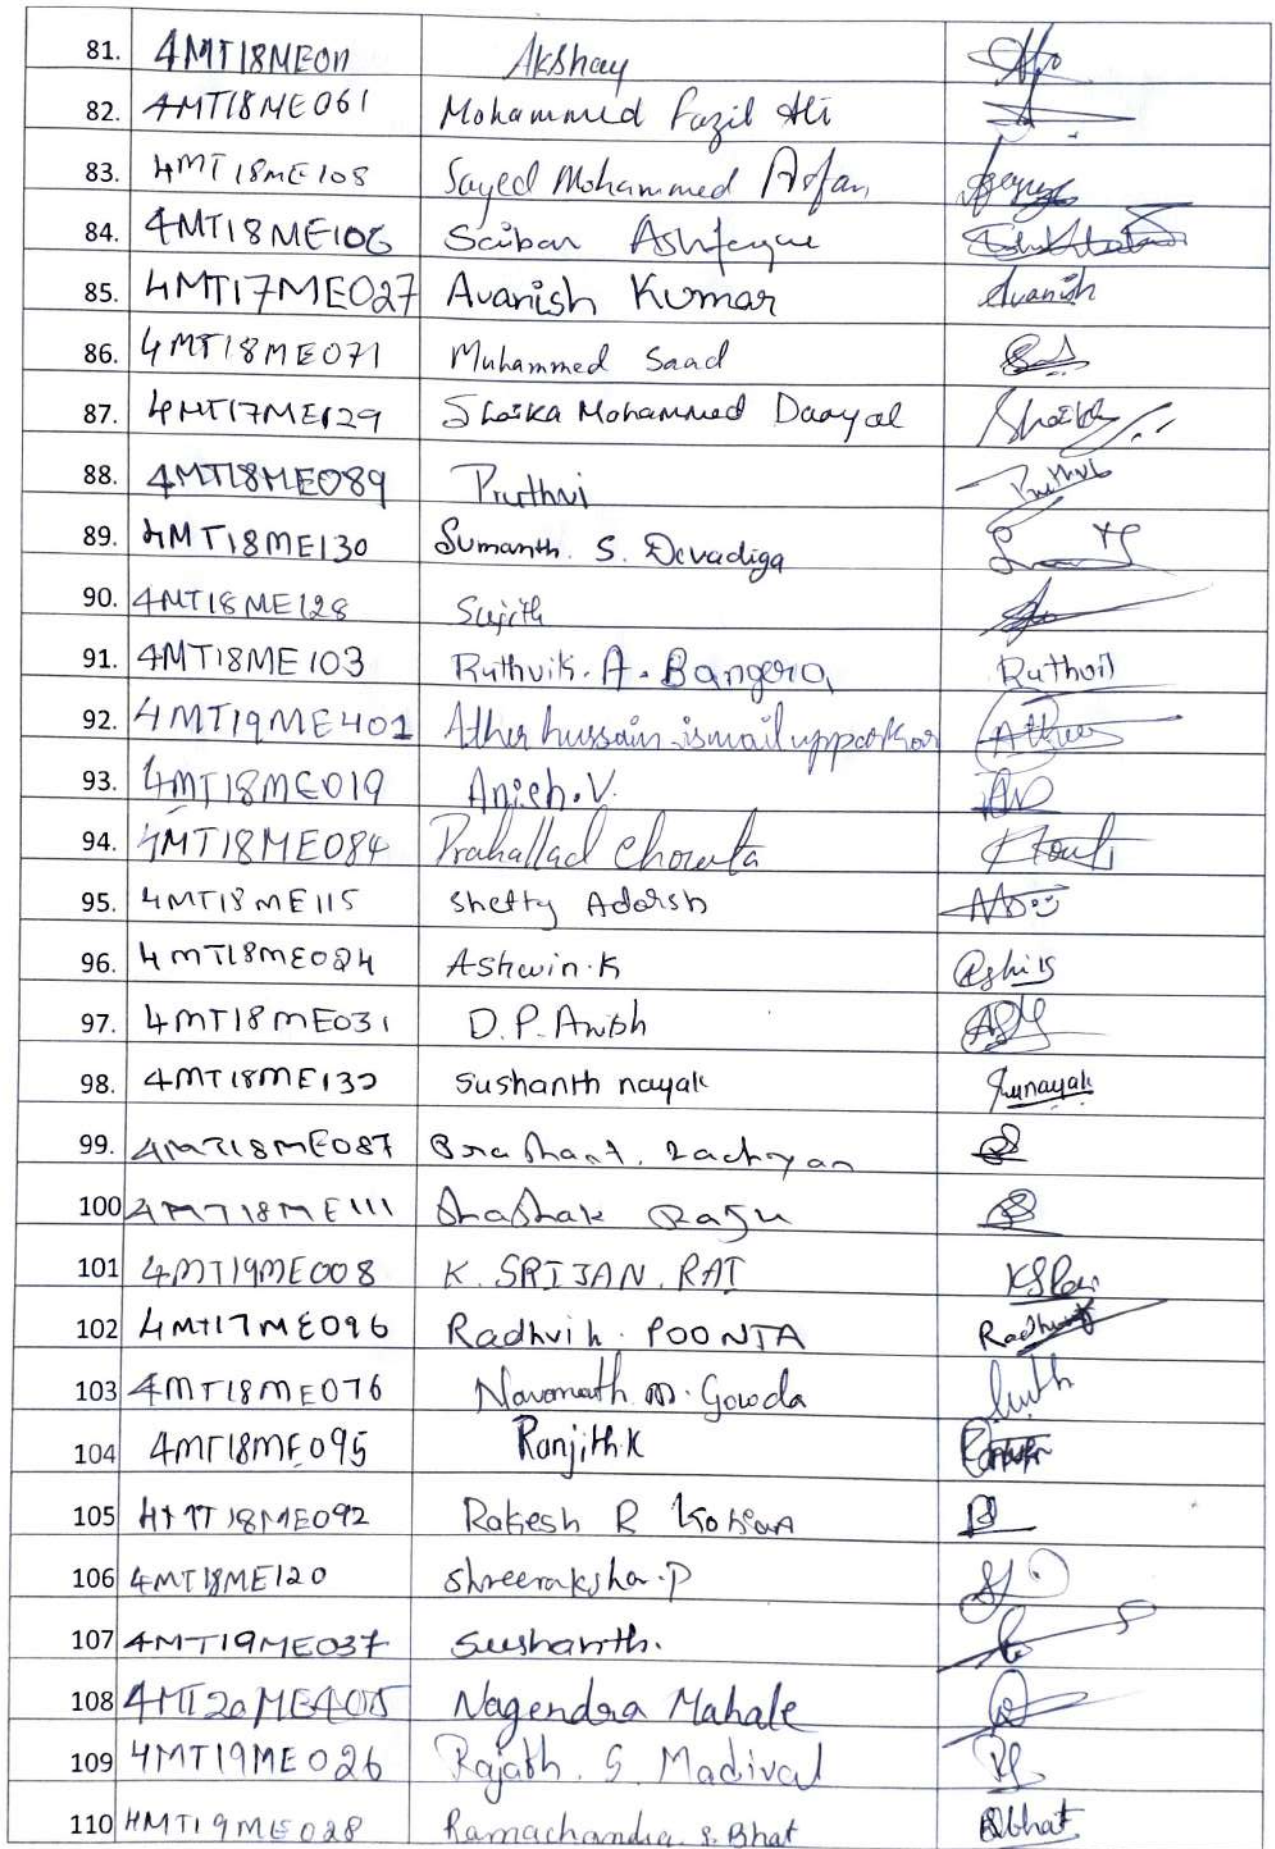 81. 4MT18ME011 Akshay
82. 4MT18ME061 Mohammed Fazil Ali
83. 4MT18ME108 Sayed Mohammed Arfan
84. 4MT18ME106 Saiban Ashfaque
85. 4MT17ME027 Avanish Kumar Avanish
86. 4MT18ME071 Muhammed Saad
87. 4MT17ME129 Shaika Mohammed Daayal Shaikh
88. 4MT18ME089 Pruthvi Pruthvi
89. 4MT18ME130 Sumanth. S. Devadiga
90. 4MT18ME128 Sujith
91. 4MT18ME103 Ruthvik. A. Bangera Ruthvik
92. 4MT19ME401 Ather hussain ismail uppatkar Ather
93. 4MT18ME019 Anish.V.
94. 4MT18ME084 Prahallad Chowta
95. 4MT18ME115 Shetty Adarsh
96. 4MT18ME024 Ashwin.K
97. 4MT18ME031 D.P. Anish
98. 4MT18ME132 Sushanth nayak Sunayak
99. 4MT18ME087 Prashant. Zachyan
100 4MT18ME111 Shashak Raju
101 4MT19ME008 K. SRIJAN. RAI KSRai
102 4MT17ME096 Radhvik. POONJA
103 4MT18ME076 Navamath m. Gowda
104 4MT18ME095 Ranjith.K
105 4MT18ME092 Rakesh R Kotian
106 4MT18ME120 Shreeraksha.P
107 4MT19ME037 Sushanth.
108 4MT20ME405 Nagendra Mahale
109 4MT19ME026 Rajath. S. Madival
110 4MT19ME028 Ramachandra. S. Bhat Rbhat